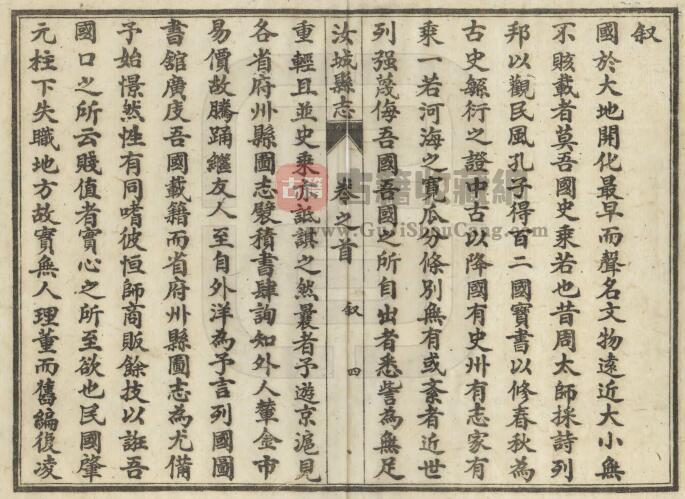 叙
國於大地開化最早而聲名文物遠近大小無
不賅載者莫吾國史乘若也昔周太師採詩列
邦以觀民風孔子得百二國寶書以修春秋為
古史緜衍之證中古以降國有史州有志家有
乘一若河海之寛瓜分條別無有或紊者近世
列强蔑侮吾國吾國之所自出者悉訾為無足
汝城縣志
卷之首
叙
四
重輕且並史乘亦詆諆之然曩者予遊京滬見
各省府州縣圖志襞積書肆詢知外人輦金市
易價故騰踊繼友人至自外洋為予言列國圖
書舘廣庋吾國載籍而省府州縣圖志為尤備
予始憬然性有同嗜彼恒師商販餘技以誑吾
國口之所云賤值者實心之所至欲也民國肇
元柱下失職地方故實無人理董而舊編復凌
古籍
古籍收藏網
www.GuJiShouCang.com